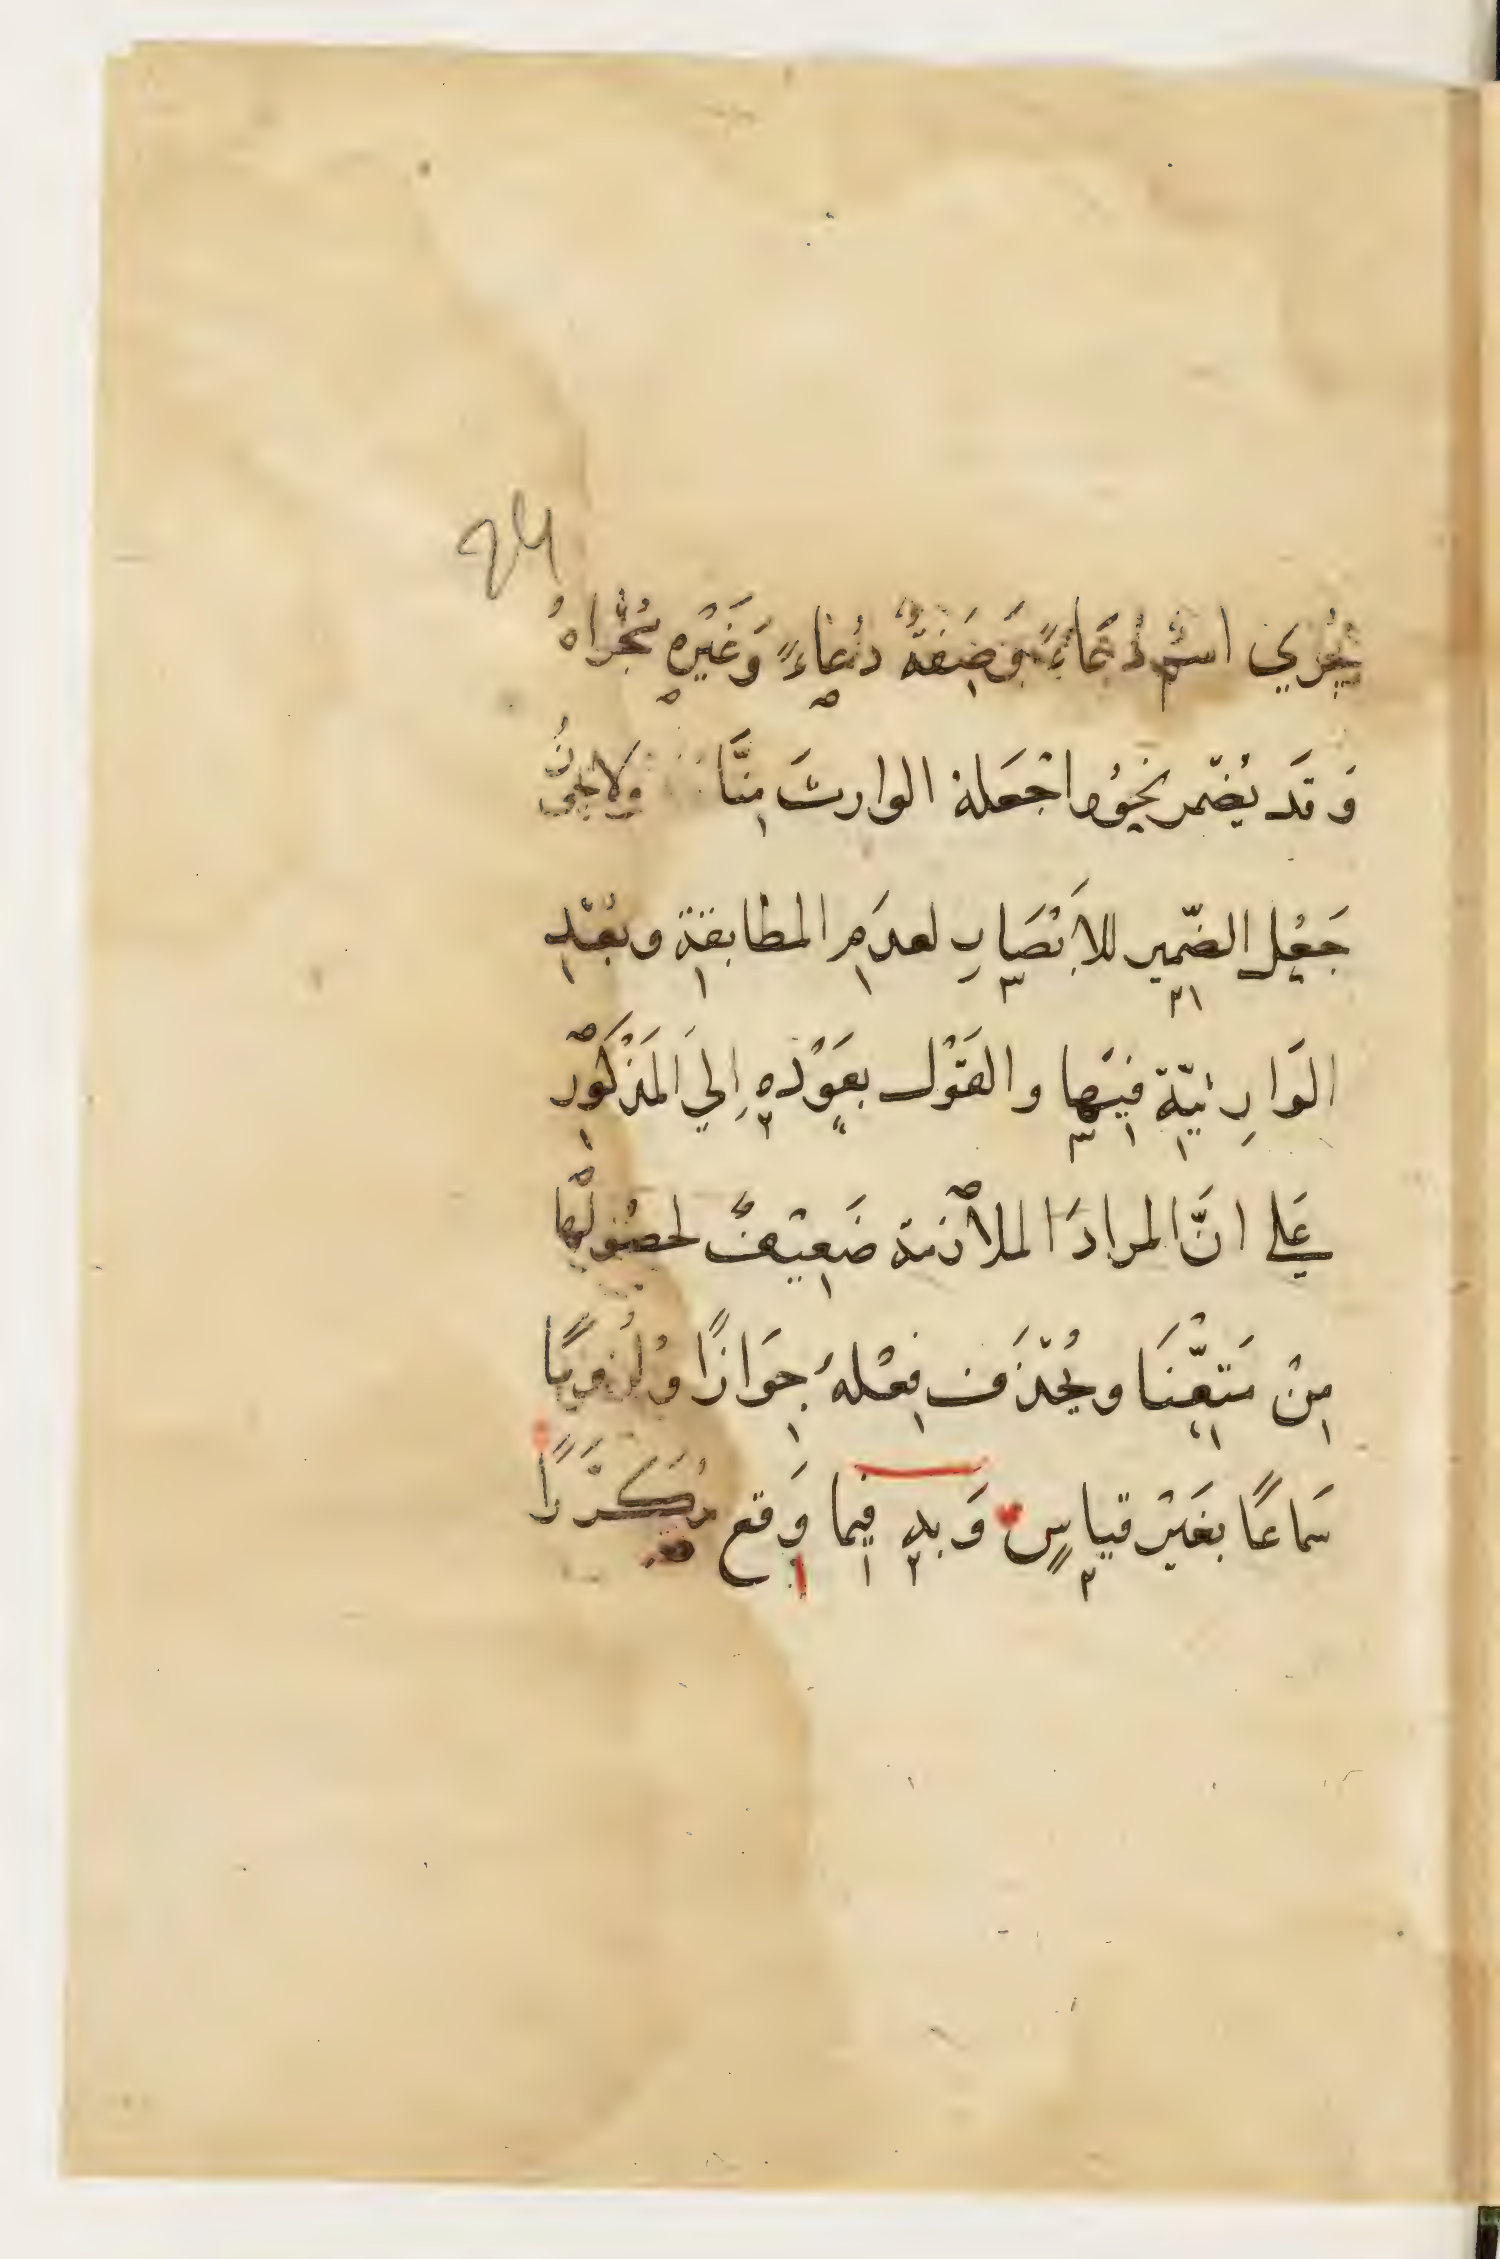 ٢٤
يُجْرِي اسْمُ دُعَاءً وَصِفَةٌ دُعَاءٍ وَغَيْرِهِ مُجْرَاهُ
وَقَد يُضْمَر نحوُ واجْعَلهُ الوارِثَ مِنَّا وَلا يجوُزُ
جَعْلِ الضّمِير للأَبْصَارِ لعدَمِ المطابقةِ وبُعْدِ
الوَارِثيّةِ فِيهَا والقَوْل بعَوْدِهِ اِليَ المَذْكُوْرِ
عَلي انَّ المرادَ الملاَزمة ضَعِيْفٌ لحصُوْلهَا
مِنْ مَتِعّْنَا ويُحْذَف فِعْلهُ جِوَازًا ولُزُومًا
سَماعًا بغَيْر قياسٍ وَبهِ فِيما وَقع مُكَرَّرًا